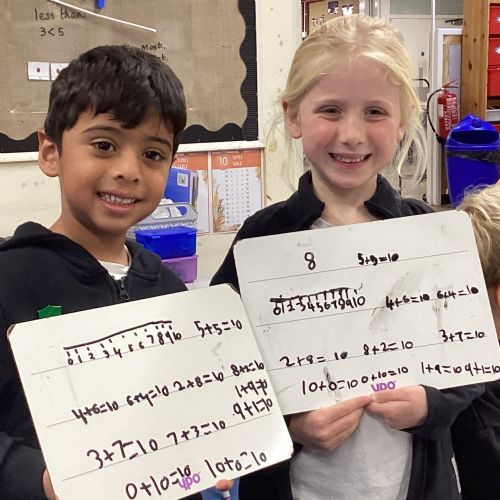 less than
3 < 5
Most.
10
TIMES TABLE
0 1 2 3 4 5 6 7 8 9 10
5+5=10
4+6=10 6+4=10 2+8=10 8+2=10
1+9=10
9+1=10
3+7=10 7+3=10
0+10=10 10+0=10
VPO
8
5+9=10
0 1 2 3 4 5 6 7 8 9 10
4+6=10 6+4=10
3+7=10
2+8=10 8+2=10
1+9=10 9+1=10
10+0=10 0+10=10
VPO